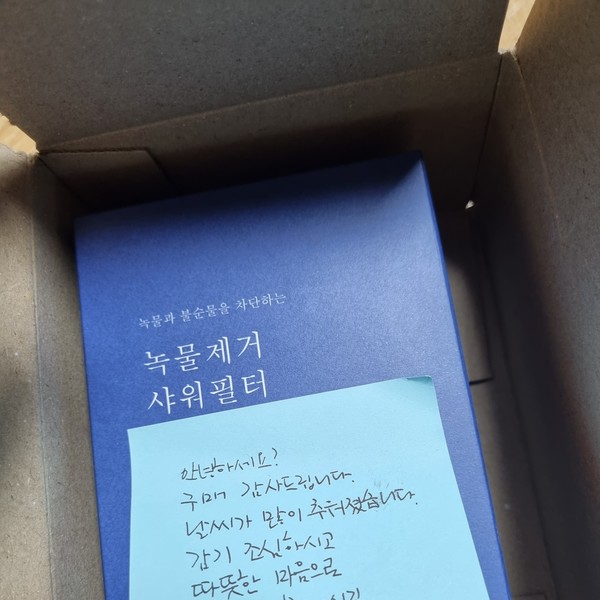 녹물과 불순물을 차단하는
녹물제거
샤워필터
안녕하세요?
구매 감사드립니다.
날씨가 많이 추워졌습니다.
감기 조심하시고
따뜻한 마음으로